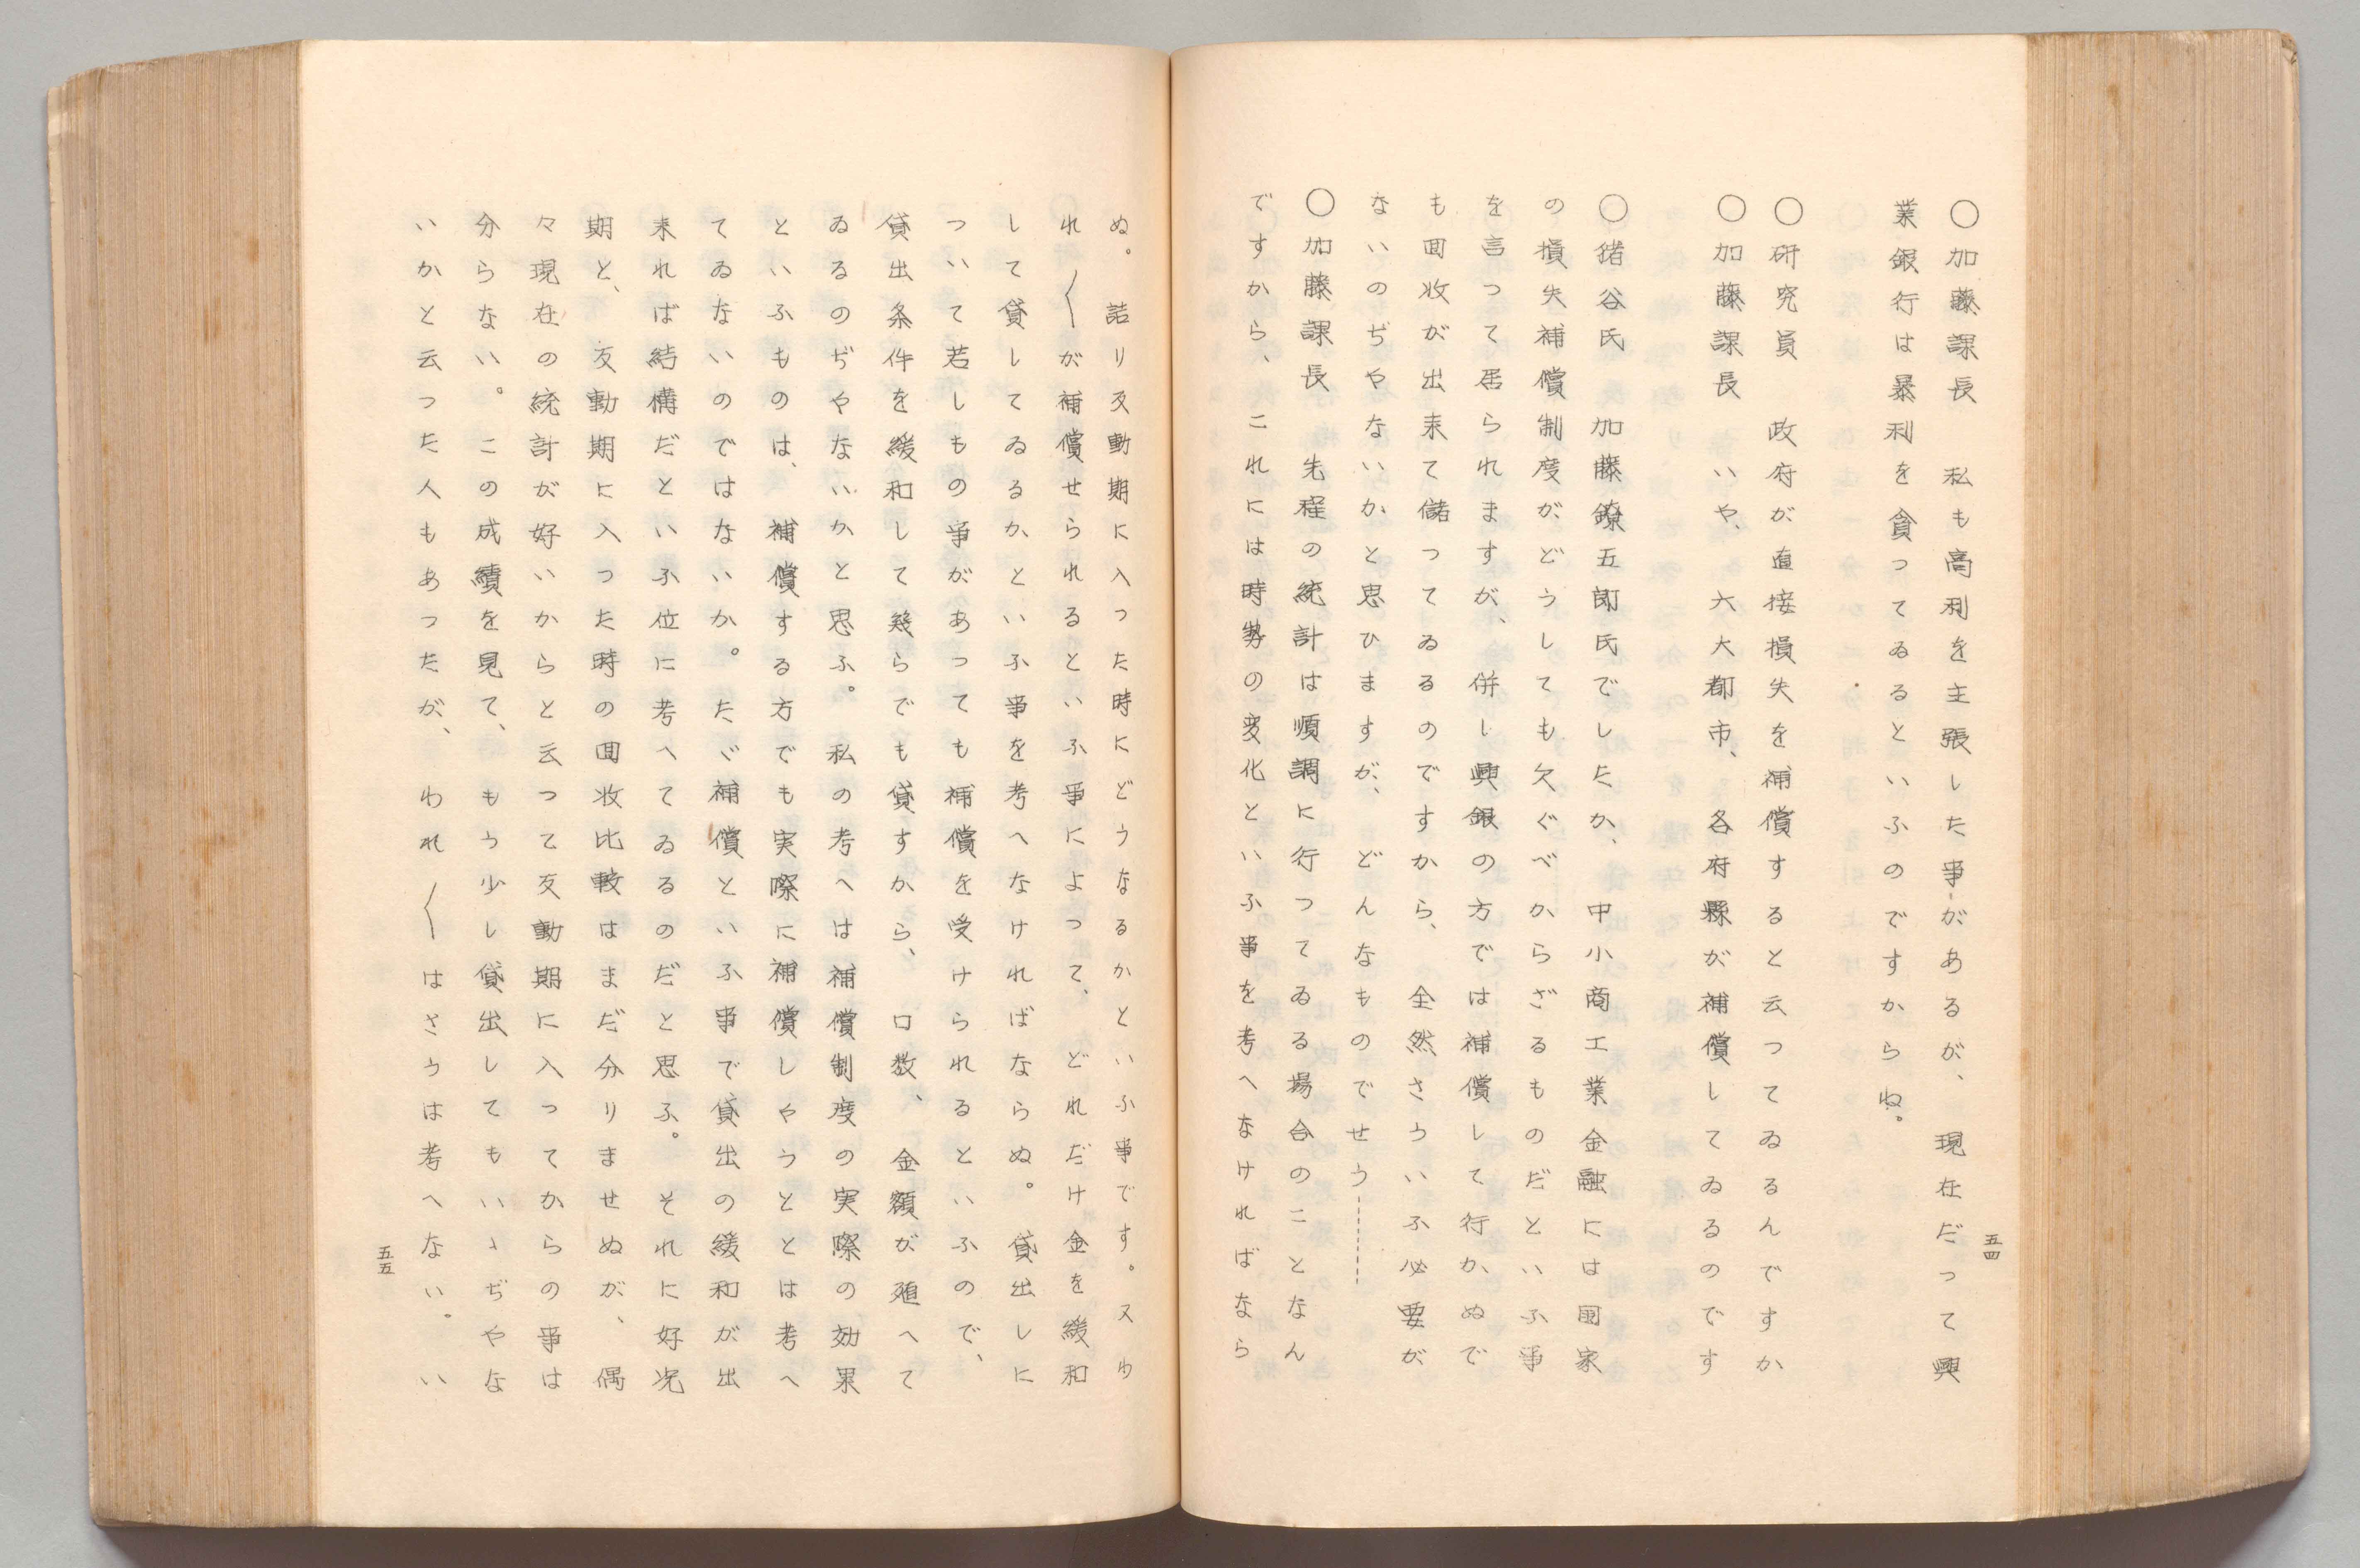 五四
○加藤課長　私も高利を主張した事があるが、現在だって興
業銀行は暴利を貪ってゐるといふのですからね。
○研究員　政府が直接損失を補償すると云ってゐるんですか
○加藤課長　いや、六大都市、各府縣が補償してゐるのです
○猪谷氏　加藤鐐五郎氏でしたか、中小商工業金融には国家
の損失補償制度がどうしても欠ぐべからざるものだといふ事
を言って居られますが、併し興銀の方では補償して行かぬで
も回收が出来て儲ってゐるのですから、全然さういふ必要が
ないのぢやないかと思ひますが、どんなものでせう------
○加藤課長　先程の統計は順調に行ってゐる場合のことなん
ですから、これには時勢の変化といふ事を考へなければなら
ぬ。詰り反動期に入った時にどうなるかといふ事です。又わ
れ〱が補償せられるといふ事によって、どれだけ金を緩和
して貸してゐるかといふ事を考へなければならぬ。貸出しに
ついて若しもの事があっても補償を受けられるといふので、
貸出条件を緩和して幾らでも貸すから、口数、金額が殖へて
ゐるのぢやないかと思ふ。私の考へは補償制度の実際の効果
といふものは、補償する方でも実際に補償しやうととは考へ
てゐないのではないか。たゞ補償といふ事で貸出の緩和が出
来れば結構だといふ位に考へてゐるのだと思ふ。それに好况
期と、反動期に入った時の回收比較はまだ分りませぬが、偶
々現在の統計が好いからと云って反動期に入ってからの事は
分らない。この成績を見て、もう少し貸出してもいゝぢやな
いかと云った人もあったが、われ〱はさうは考へない。い
五五